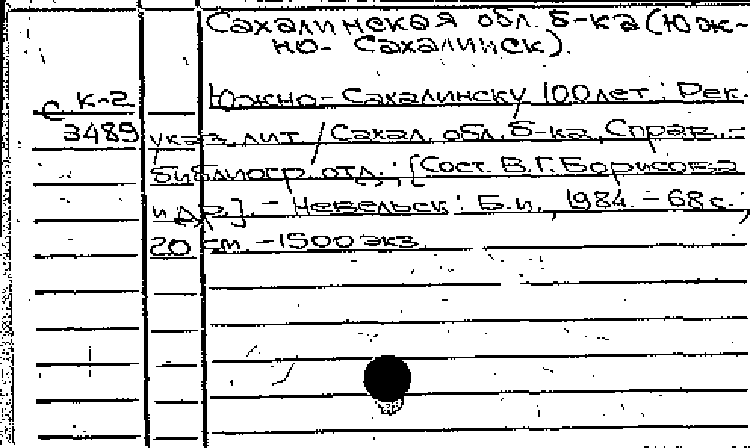 Сахалинская обл. б-ка (Юж-
но-Сахалинск).
Южно-Сахалинску 100 лет : Рек.
с К-2
3489 указ. лит. / Сахал. обл. б-ка, Справ.-
библиогр. отд. ; [Сост. В.Г. Борисова
и др.]. - Невельск : Б.и., 1984. - 68 с. ;
20 см. - 1500 экз.